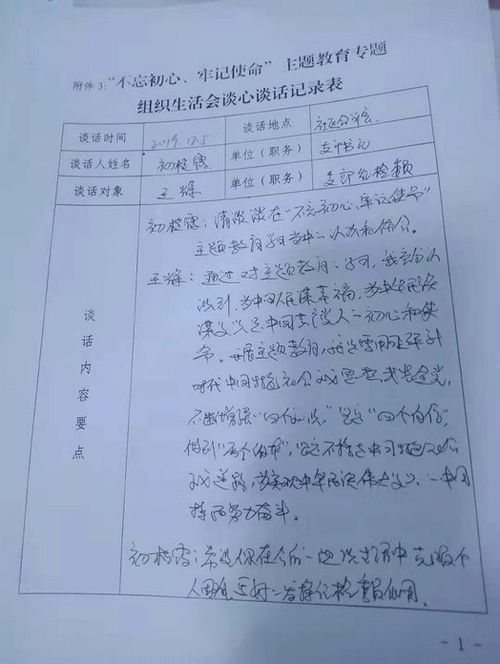 附件3：“不忘初心、牢记使命”主题教育专题
组织生活会谈心谈话记录表
谈话时间 2019.12.5 谈话地点 社区会议室
谈话人姓名 初桂霞 单位（职务） 支部书记
谈话对象 王辉 单位（职务） 支部纪检员
谈话内容要点
初桂霞：请谈谈在“不忘初心、牢记使命”
主题教育学习当中的认识和体会。
王辉：通过对主题教育的学习，我充分认
识到，为中国人民谋幸福，为中华民族
谋复兴是中国共产党人的初心和使
命。
时代中国特色社会主义思想，
不断增强“四个意识”坚定“四个自信”
做到“两个维护”，坚定不移走中国特色社会
主义道路，为实现中华民族伟大复兴的中国
梦而努力奋斗。
初桂霞：希望你在今后的
发挥纪检委员作用。
- 1 -